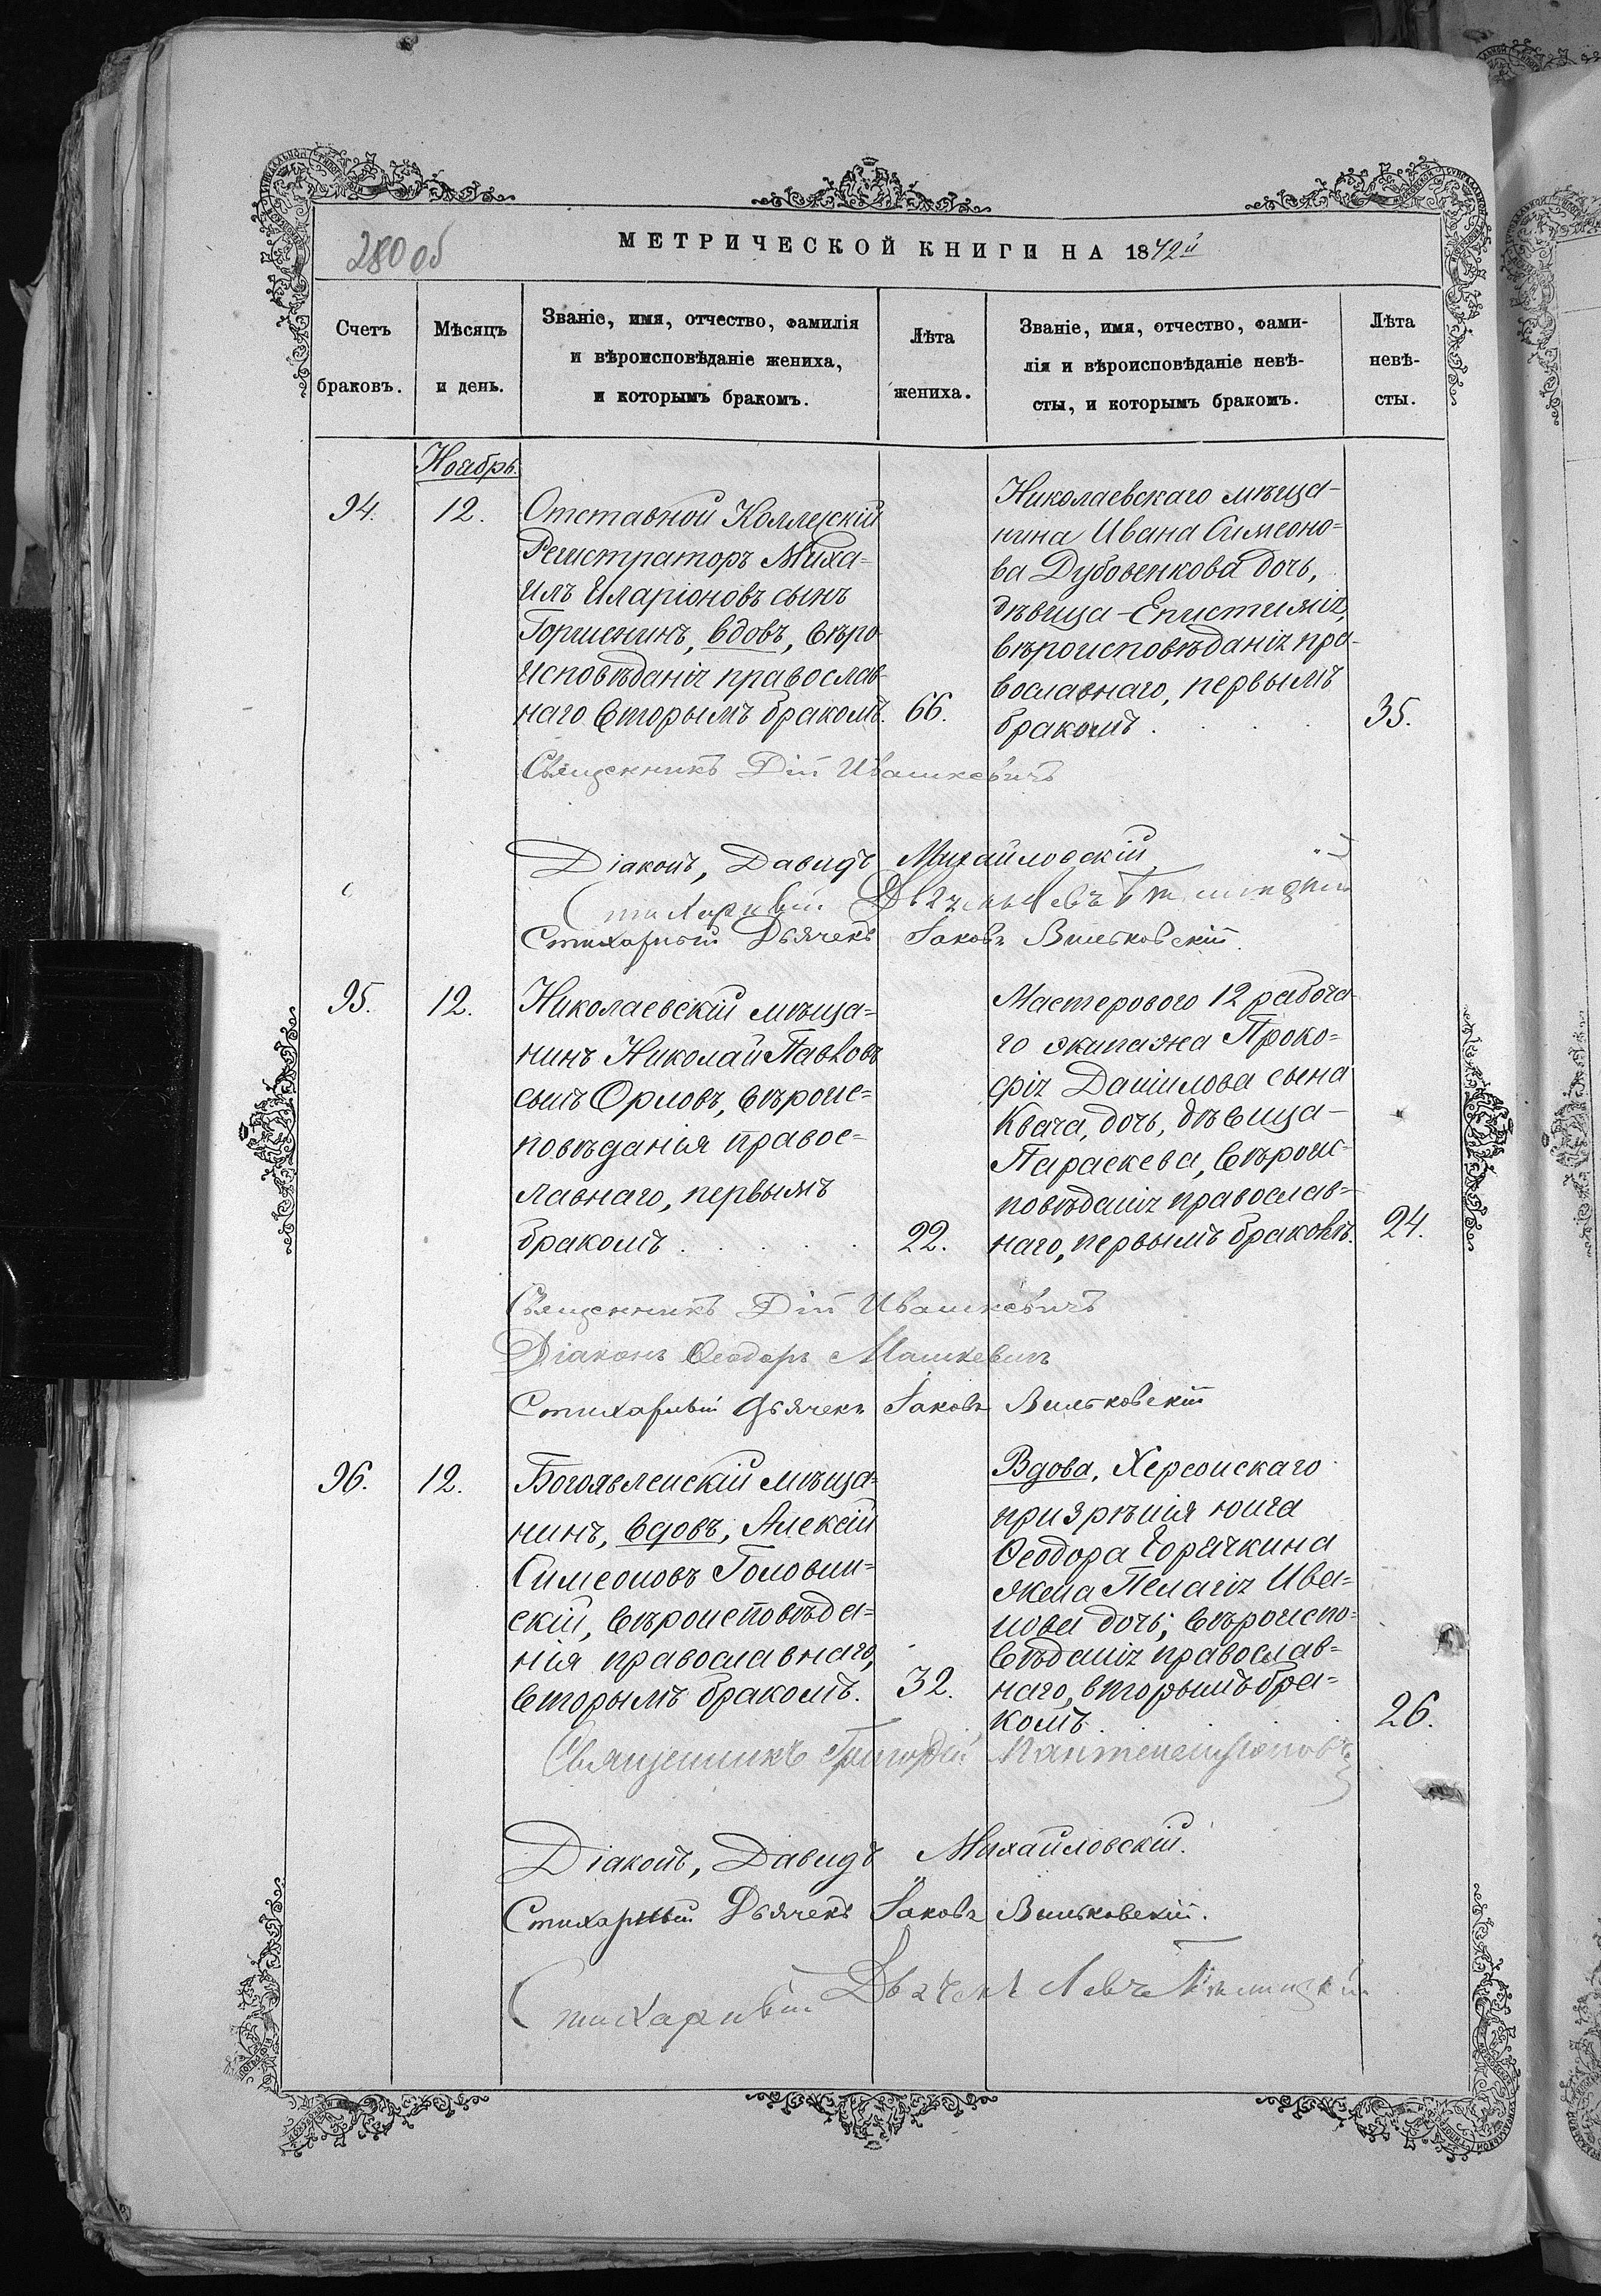 280 об
МЕТРИЧЕСКОЙ КНИГИ НА 1872й
Счетъ браковъ.
Мѣсяцъ и день.
Званіе, имя, отчество, фамилія
и вѣроисповѣданіе жениха,
и которымъ бракомъ.
Лѣта жениха.
Званіе, имя, отчество, фами-
лія и вѣроисповѣданіе невѣ-
сты, и которымъ бракомъ.
Лѣта невѣ-
сты.
Ноябрь.
94.
12.
Отставной Коллежскій
Регистраторъ Миха-
илъ Иларіоновъ сынъ
Горшенинъ, вдовъ, вѣро-
исповѣданія православ-
наго вторымъ бракомъ.
66.
Николаевскаго мѣща-
нина Ивана Симеоно-
ва Дубовенкова дочь,
дѣвица - Епистимія,
вѣроисповѣданія пра-
вославнаго, первымъ
бракомъ
35.
Священникъ Дій Ивашкевичъ
Діаконъ, Давидъ Михайловскій
Стихарный Дьячекъ Левъ
Стихарный Дьячекъ Іаковъ Вильковскій.
95.
12.
Николаевскій мѣща-
нинъ Николай Павловъ
сынъ Орловъ, вѣроис-
повѣданія правос-
лавнаго, первымъ
бракомъ
22.
Мастерового 12 рабоча-
го экипажа Проко-
фія Даніилова сына
Квача, дочь, дѣвица -
Параскева, вѣроис-
повѣданія православ-
наго, первымъ бракомъ.
24.
Священникъ Дій Ивашкевичъ
Діаконъ Ѳеодоръ Машкевичъ
Стихарный Дьячекъ Іаковъ Вильковскій
96.
12.
Богоявленскій мѣща-
нинъ, вдовъ, Алексій
Симеоновъ Головин-
скій, вѣроисповѣда-
нія православнаго,
вторымъ бракомъ.
32.
Вдова, Херсонскаго
призрѣнія юнга
Ѳеодора Горячкина
жена Пелагія Ива-
нова дочь, вѣроиспо-
вѣданія православ-
наго, вторымъ бра-
комъ.
26.
Священникъ Григорій
Діаконъ, Давидъ Михайловскій.
Стихарный Дьячекъ Іаковъ Вильковскій.
Стихарный Дьячекъ Левъ